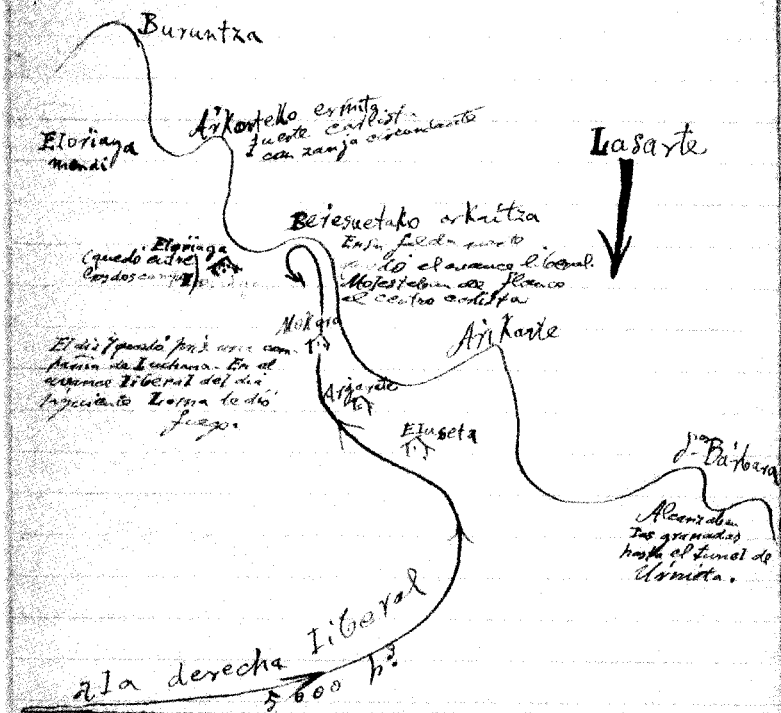 Buruntza
Arkosteko ermita
fuerte carlist.
con zanja circundante
Eloriaga
mendi
Lasarte
Beresuetako arkaitza
En su falda
el avance liberal.
Molestaban de flanco
el centro carlista
Eloriaga
(quedó entre
los dos campos)
Mokara
Arikarte
El día 7 quedó una com-
pañía de Luchana. En el
avance liberal del día
siguiente Loma le dió
fuego.
Argarate
Eluseta
Sta Bárbara
Alcanzaban
las granadas
hasta el tunel de
Urnieta.
Ala derecha liberal
5.600 hs